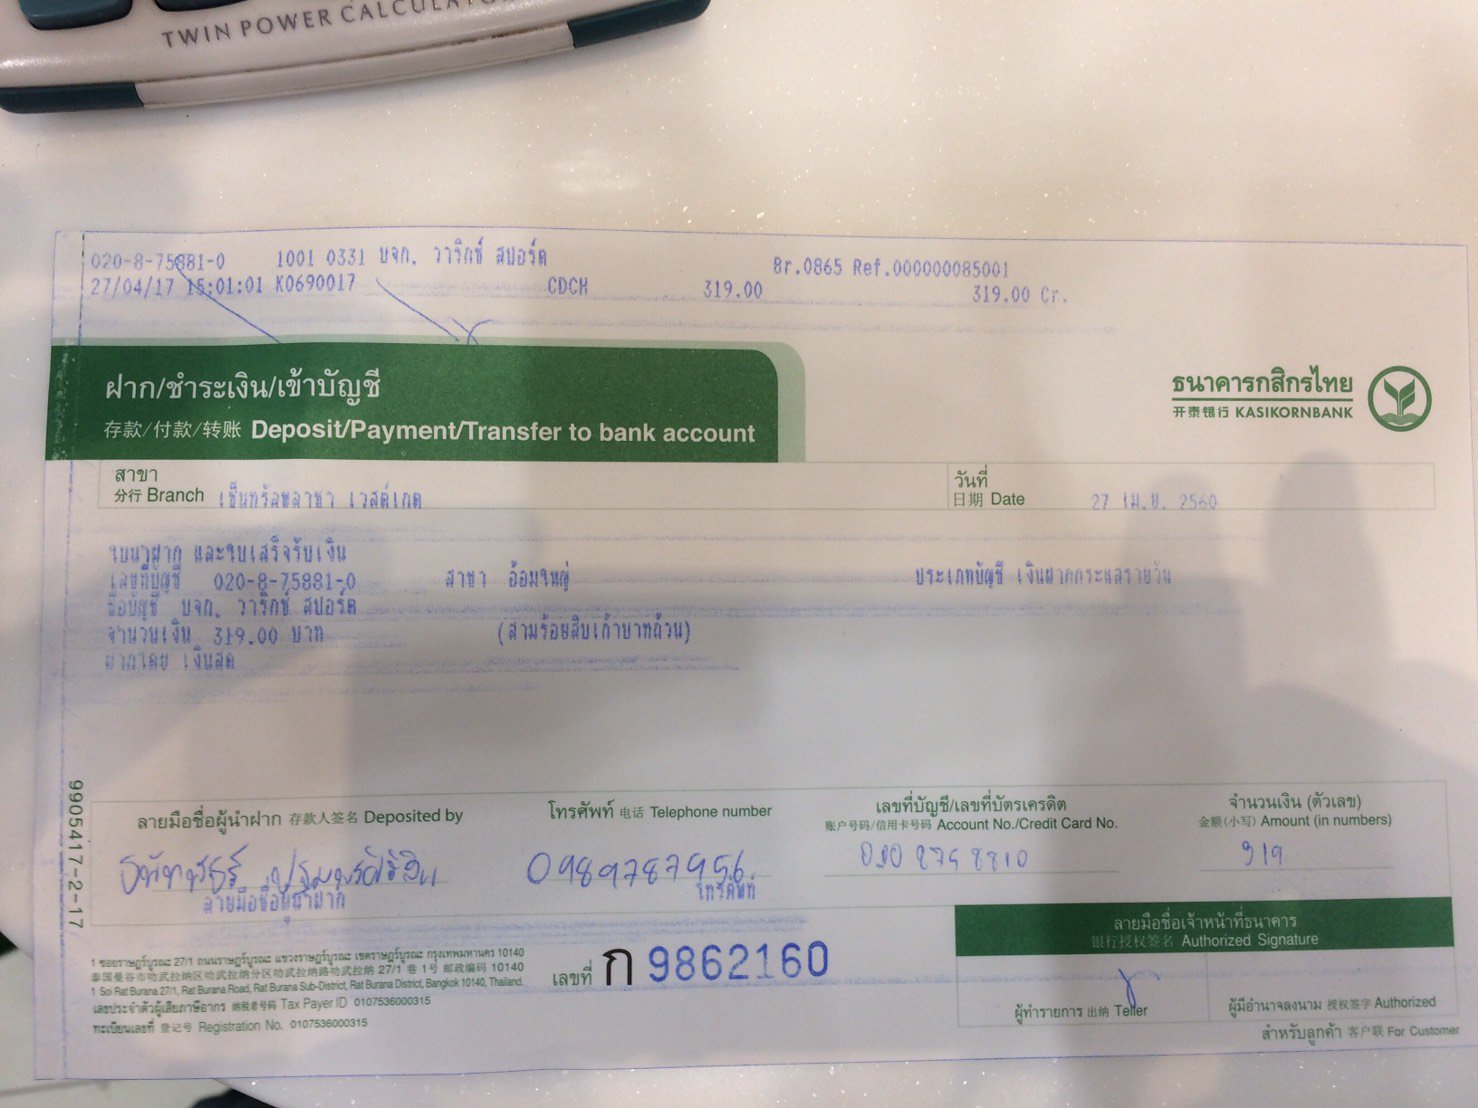 TWIN POWER CALCULATOR
020-8-75881-0 1001 0331 บจก. วาริกซ์ สปอร์ต Br.0865 Ref.000000085001
27/04/17 15:01:01 K0690017 CDCH 319.00 319.00 Cr.
ฝาก/ชำระเงิน/เข้าบัญชี
存款/付款/转账 Deposit/Payment/Transfer to bank account
ธนาคารกสิกรไทย
开泰银行 KASIKORNBANK
สาขา
分行 Branch เซ็นทรัลพลาซา เวสต์เกต
วันที่
日期 Date 27 เม.ย. 2560
ใบนำฝาก และใบเสร็จรับเงิน
เลขที่บัญชี 020-8-75881-0 สาขา อ้อมใหญ่ ประเภทบัญชี เงินฝากกระแสรายวัน
ชื่อบัญชี บจก. วาริกซ์ สปอร์ต
จำนวนเงิน 319.00 บาท (สามร้อยสิบเก้าบาทถ้วน)
ฝากโดย เงินสด
9905417-2-17
ลายมือชื่อผู้นำฝาก 存款人签名 Deposited by
โทรศัพท์ 电话 Telephone number
0989787956
โทรศัพท์
เลขที่บัญชี/เลขที่บัตรเครดิต
账户号码/信用卡号码 Account No./Credit Card No.
จำนวนเงิน (ตัวเลข)
金额(小写) Amount (in numbers)
319
ลายมือชื่อผู้นำฝาก
1 ซอยราษฎร์บูรณะ 27/1 ถนนราษฎร์บูรณะ แขวงราษฎร์บูรณะ เขตราษฎร์บูรณะ กรุงเทพมหานคร 10140
泰国曼谷市叻武拉纳区叻武拉纳分区叻武拉纳路叻武拉纳 27/1 巷 1 号 邮政编码 10140
1 Soi Rat Burana 27/1, Rat Burana Road, Rat Burana Sub-District, Rat Burana District, Bangkok 10140, Thailand.
เลขประจำตัวผู้เสียภาษีอากร 纳税者号码 Tax Payer ID 0107536000315
ทะเบียนเลขที่ 登记号 Registration No. 0107536000315
เลขที่ ก 9862160
ลายมือชื่อเจ้าหน้าที่ธนาคาร
银行授权签名 Authorized Signature
ผู้ทำรายการ 出纳 Teller
ผู้มีอำนาจลงนาม 授权签字 Authorized
สำหรับลูกค้า 客户联 For Customer